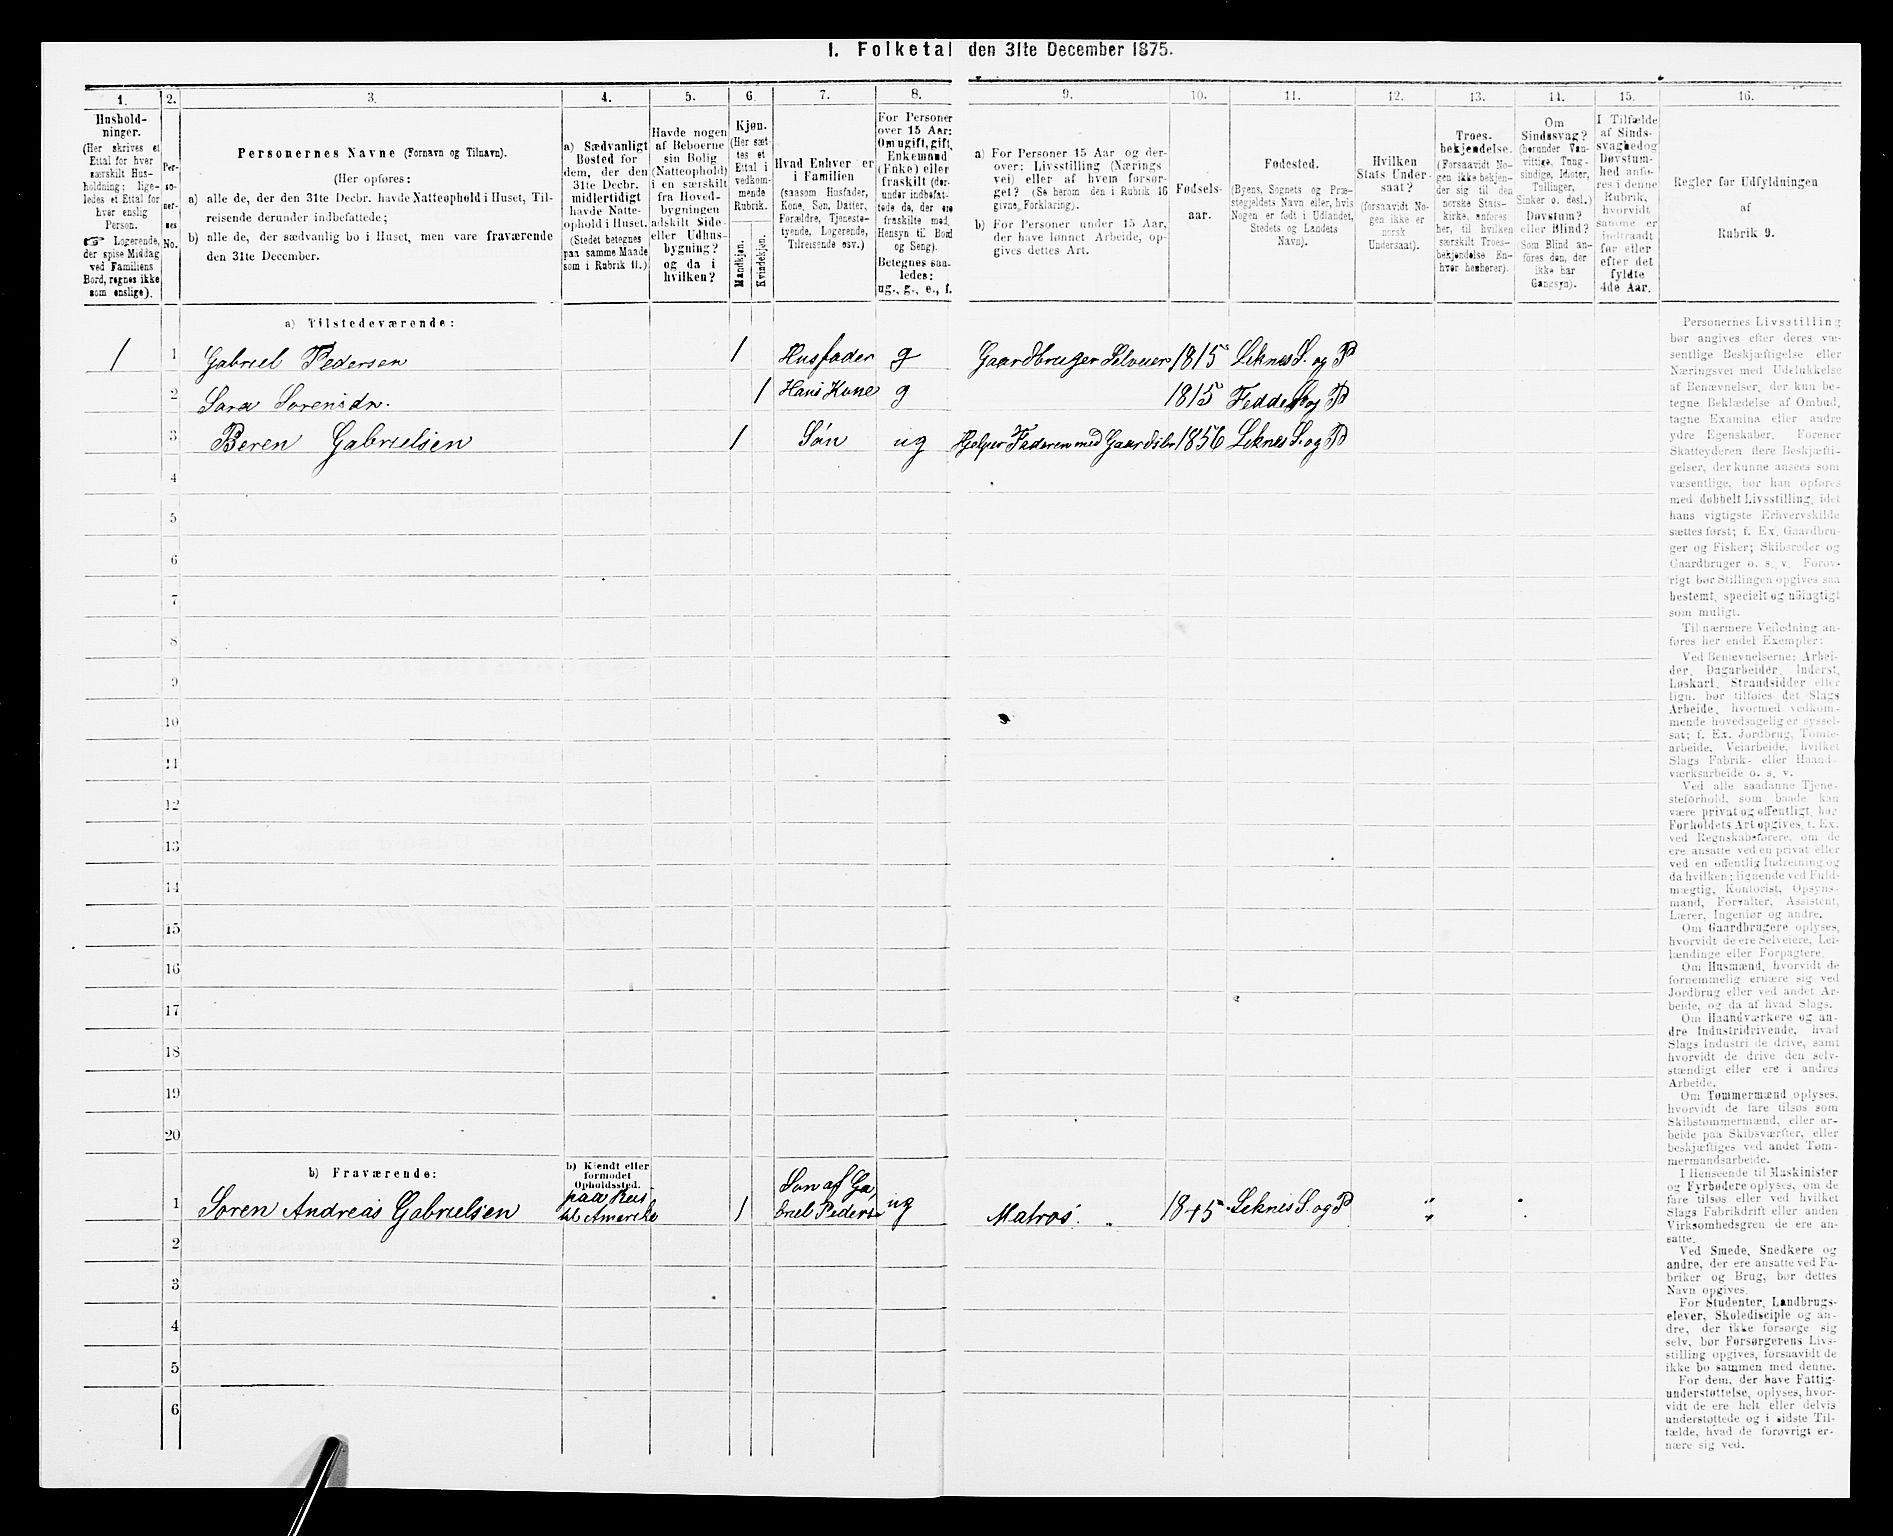 1. Folketal den 31te December 1875.
1. 2. 3. 4. 5. 6. 7. 8. 9. 10. 11. 12. 13. 14. 15. 16.
Hushold-
ninger.
(Her skrives et
Ettal for hver
særskilt Hus-
holdning; lige-
ledes et Ettal for
hver enslig
Person.
☞ Logerende,
der spise Middag
ved Familiens
Bord, regnes ikke
som enslige).
Per-
so-
ner-
nes
No.
Personernes Navne (Fornavn og Tilnavn).
(Her opføres:
a) alle de, der den 31te Decbr. havde Natteophold i Huset, Til-
reisende derunder indbefattede;
b) alle de, der sædvanlig bo i Huset, men vare fraværende
den 31te December.
a) Sædvanligt
Bosted for
dem, der den
31te Decbr.
midlertidigt
havde Natte-
ophold i Huset.
(Stedet betegnes
paa samme Maade
som i Rubrik 11.)
Havde nogen
af Beboerne
sin Bolig
(Natteophold)
i en særskilt
fra Hoved-
bygningen
adskilt Side-
eller Udhus-
bygning?
og da i
hvilken?
Kjøn.
(Her sæt
tes et
Ettal i
vedkom-
mende
Rubrik.
Mandkjøn.
Kvindekjøn.
Hvad Enhver er
i Familien
(saasom Husfader,
Kone, Søn, Datter,
Forældre, Tjeneste-
tyende, Logerende,
Tilreisende osv.)
For Personer
over 15 Aar:
Om ugift, gift,
Enkemand
(Enke) eller
fraskilt (der-
under indbefat-
tede de, der ere
fraskilte med
Hensyn til Bord
og Seng).
Betegnes saa-
ledes:
ug., g., e., f.
a) For Personer 15 Aar og der-
over: Livsstilling (Nærings-
vei) eller af hvem forsør-
get? (Se herom den i Rubrik 16
givne Forklaring).
b) For Personer under 15 Aar,
der have lønnet Arbeide, op-
gives dettes Art.
Fødsels-
aar.
Fødested.
(Byens, Sognets og Præ-
stegjeldets Navn eller, hvis
Nogen er født i Udlandet,
Stedets og Landets
Navn).
Hvilken
Stats Under-
saat?
(forsaavidt No-
gen ikke er
norsk
Undersaat).
Troes-
bekjendelse.
(Forsaavidt No-
gen ikke bekjen-
der sig til den
norske Stats-
kirke, anføres
her, til hvilken
særskilt Troes-
bekjendelse En-
hver henhører).
Om
Sindssvag?
(herunder Van-
vittige, Tung-
sindige, Idioter,
Tullinger,
Sinker o. desl.)
Døvstum?
eller Blind?
(Som Blind an-
føres den, der
ikke har
Gangsyn).
I Tilfælde
af Sinds-
svaghed og
Døvstum-
hed anfø-
res i denne
Rubrik,
hvorvidt
samme er
indtraadt
før eller
efter det
fyldte
4de Aar.
Regler for Udfyldningen
af
Rubrik 9.
a) Tilstedeværende:
1 1 Gabriel Pedersen 1 Husfader g Gaardbruger Selveier 1815 Leknes S. og P
2 Sara Sorensdr. 1 Hans Kone g 1815 Fedde S og P
3 Beren Gabrielsen 1 Søn ug Hjelper Faderen med Gaardsbr 1856 Leknes S. og P
4
5
6
7
8
9
10
11
12
13
14
15
16
17
18
19
20
b) Fraværende:
b) Kjendt eller
formodet
Opholdssted.
1 Soren Andreas Gabrielsen paa Reis
til Amerika 1 Søn af Ga,
briel Peders ug Matros. 1845 Leknes S. og P
2
3
4
5
6
Personernes Livsstilling
bør angives efter deres væ-
sentlige Beskjæftigelse eller
Næringsvei med Udelukkelse
af Benævnelser, der kun be-
tegne Beklædelse af Ombud,
tagne Examina eller andre
ydre Egenskaber. Forener
Skatteyderen flere Beskjæfti-
gelser, der kunne ansees som
væsentlige, bør han opføres
med dobbelt Livsstilling, idet
hans vigtigste Erhvervskilde
sættes først; f. Ex. Gaardbru-
ger og Fisker; Skibsreder og
Gaardbruger o. s. v. Forøv-
rigt bør Stillingen opgives saa
bestemt, specielt og nöiagtigt
som muligt.
Til nærmere Veiledning an-
føres her endel Exempler:
Ved Benævnelserne: Arbei-
der, Dagarbeider, Inderst,
Løskarl, Strandsidder eller
lign. bør tilføies det Slags
Arbeide, hvormed vedkom-
mende hovedsagelig er syssel-
sat; f. Ex. Jordbrug, Tomte-
arbeide, Veiarbeide, hvilket
Slags Fabrik- eller Haand-
værksarbeide o. s. v.
Ved alle saadanne Tjene-
steforhold, som baade kan
være privat og offentligt, bør
Forholdets Art opgives, f. Ex.
ved Regnskabsførere, om de
ere ansatte ved en privat eller
ved en offentlig Indretning og
da hvilken; lignende ved Fuld-
mægtig, Kontorist, Opsyns-
mand, Forvalter, Assistent,
Lærer, Ingeniør og andre.
Om Gaardbrugere oplyses,
hvorvidt de ere Selveiere, Lei-
lændinge eller Forpagtere.
Om Husmænd, hvorvidt de
fornemmelig ernære sig ved
Jordbrug eller ved andet Ar-
beide, og da af hvad Slags.
Om Haandværkere og an-
dre Industridrivende, hvad
Slags Industri de drive, samt
hvorvidt de drive den selv-
stændigt eller ere i andres
Arbeide.
Om Tømmermænd oplyses,
hvorvidt de fare tilsøs som
Skibstømmermænd, eller ar-
beide paa Skibsværfter, eller
beskjæftiges ved andet Tøm-
mermandsarbeide.
I Henseende til Maskinister
og Fyrbødere oplyses, om de
fare tilsøs eller ved hvilket
Slags Fabrikdrift eller anden
Virksomhedsgren de ere an-
satte.
Ved Smede, Snedkere og
andre, der ere ansatte ved Fa-
briker og Brug, bør dettes
Navn opgives.
For Studenter, Landbrugs-
elever, Skoledisciple og an-
dre, der ikke forsørge sig
selv, bør Forsørgerens Livs-
stilling opgives, forsaavidt de
ikke bo sammen med denne.
For dem, der have Fattig-
understøttelse, oplyses, hvor-
vidt de ere helt eller delvis
understøttede og i sidste Til-
fælde, hvad de forøvrigt er-
nære sig ved.